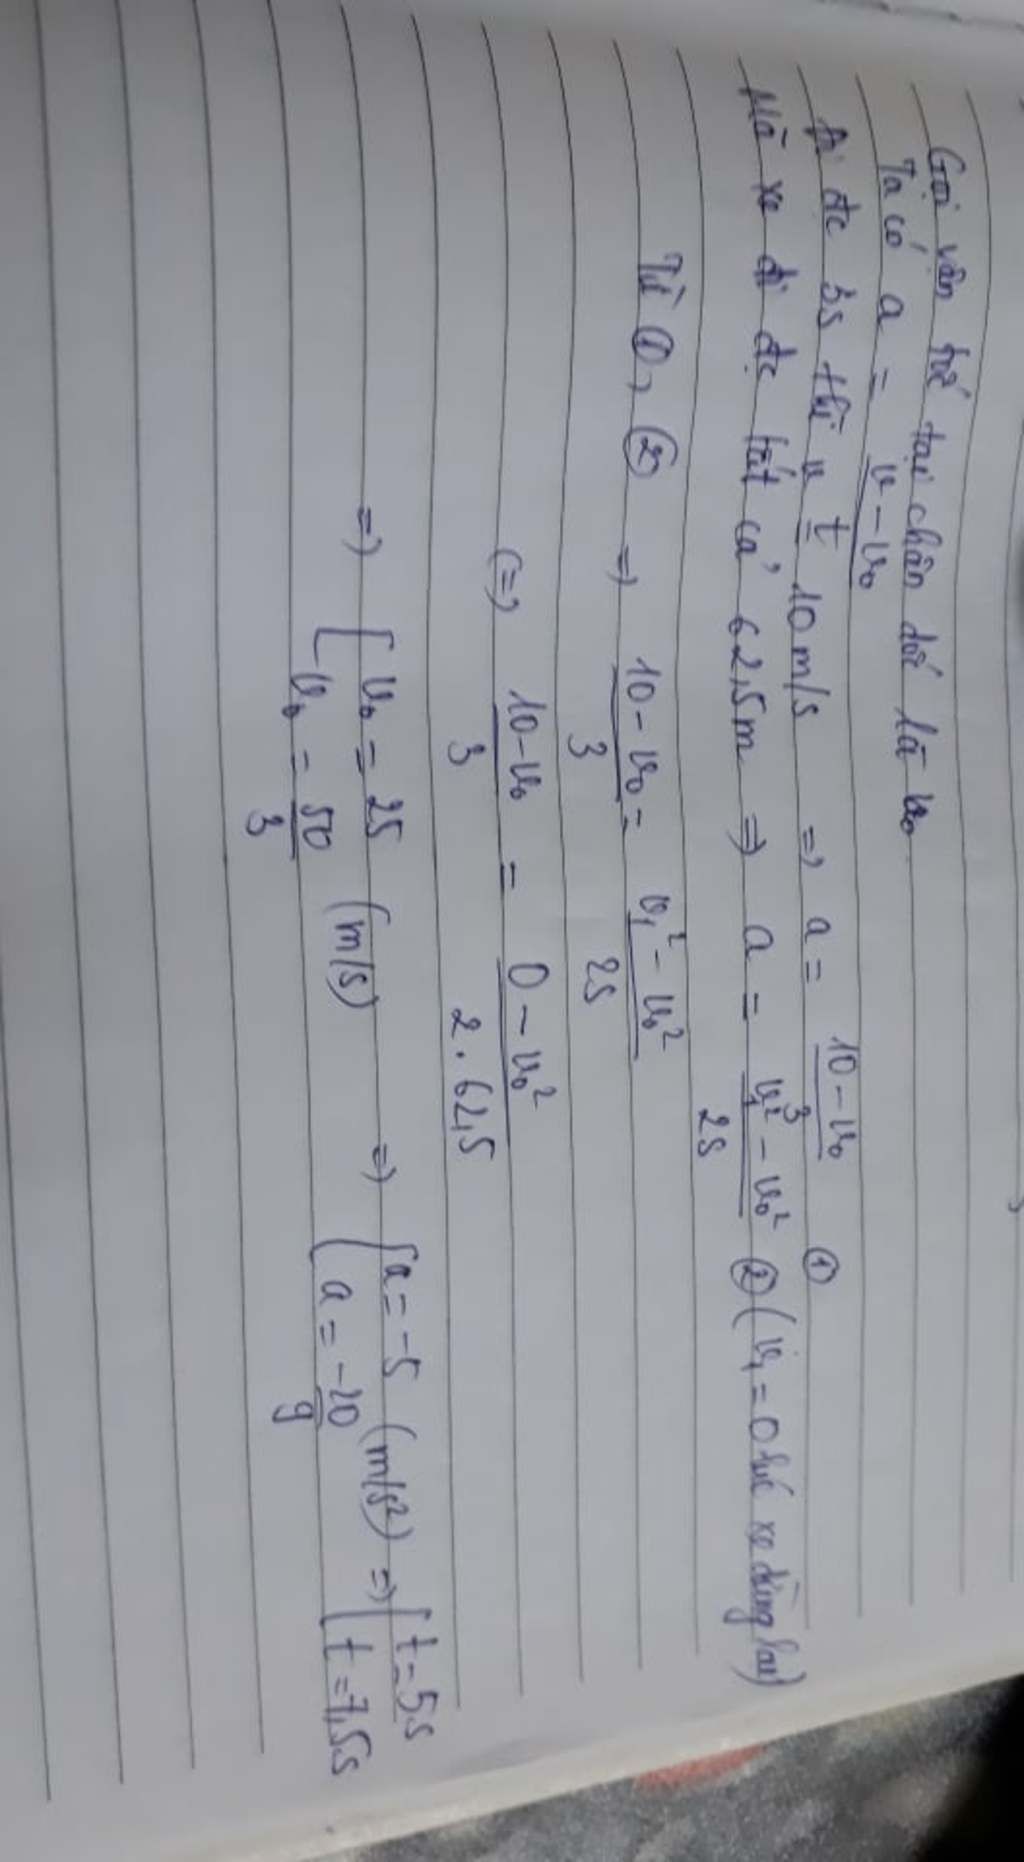 Gọi vận tốc tại chân dốc là v₀
Ta có a = (v - v₀)/t
Đi đc 3s thì v = 10 m/s => a = (10 - v₀)/3 ①
Mà xe đi đc tất cả 62,5m => a = (v₁² - v₀²)/2s ② (v₁ = 0 xe dừng lại)
Từ ①, ② => (10 - v₀)/3 = (v₁² - v₀²)/2s
(=> (10 - v₀)/3 = (0 - v₀²)/(2 . 62,5)
=> [ v₀ = 25 ; v₀ = 50/3 (m/s) => [ a = -5 ; a = -20/9 (m/s²) => [ t = 5s ; t = 7,5s